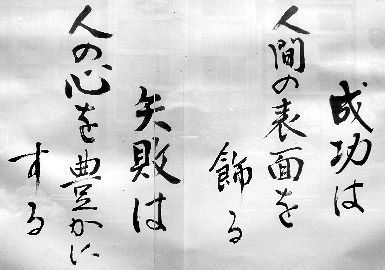 成功は
人間の表面を
飾る
失敗は
人の心を豊かに
する